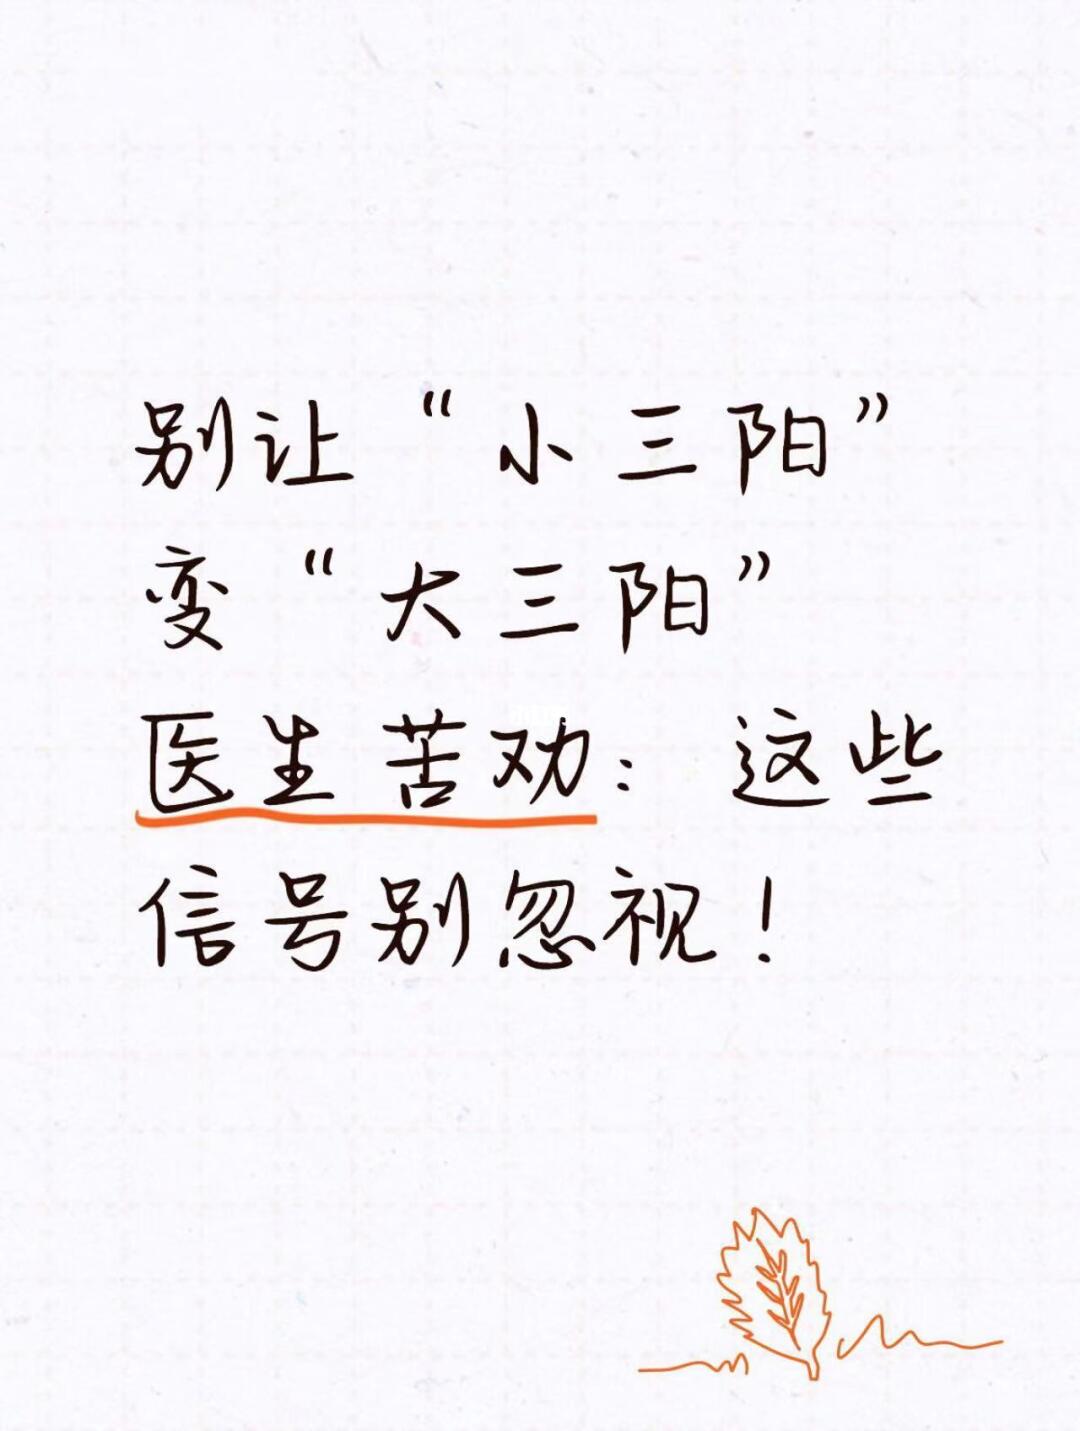 别让“小三阳”
变“大三阳”
医生苦劝：这些
信号别忽视！